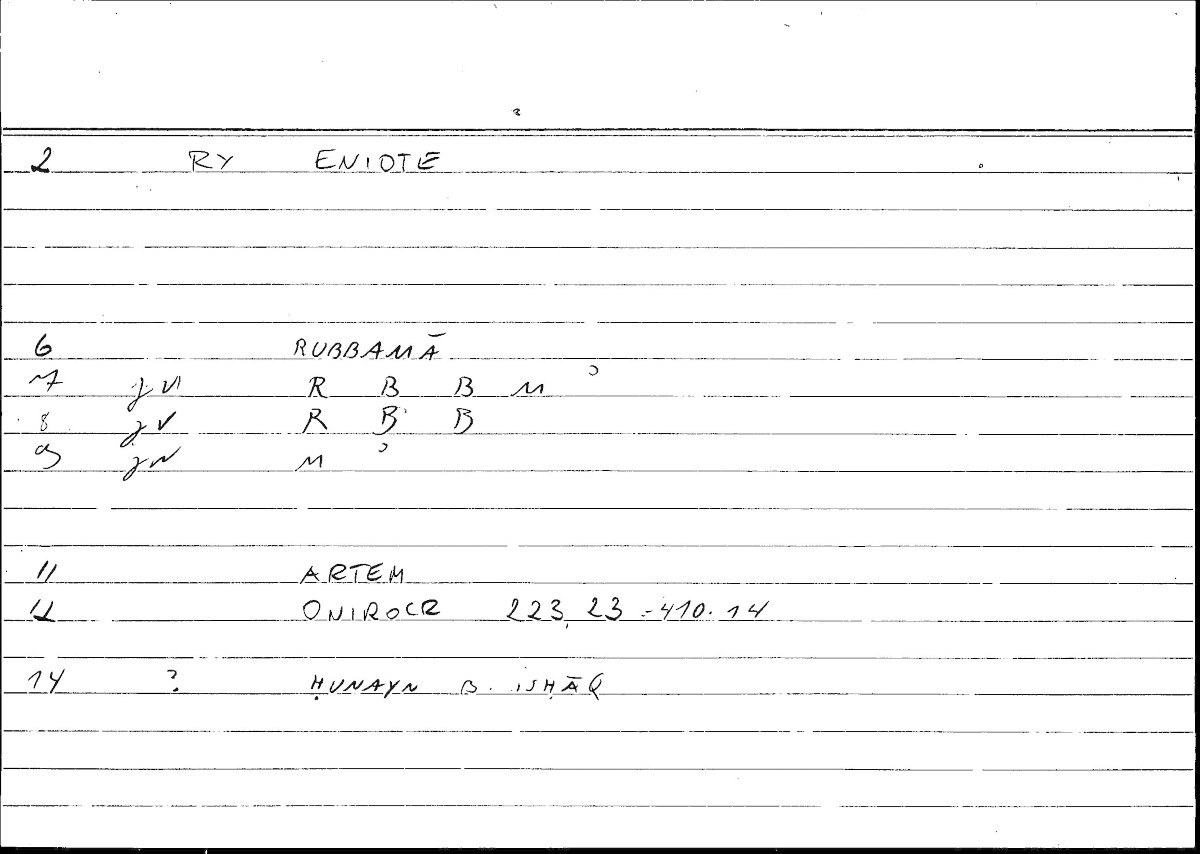 2 RY ENIOTE
6 RUBBAMĀ
7 jVI R B B M ʾ
8 jV R B B
9 jN M ʾ
11 ARTEM
12 ONIROCR 223, 23 = 410. 14
14 ? ḤUNAYN B. ISḤĀQ